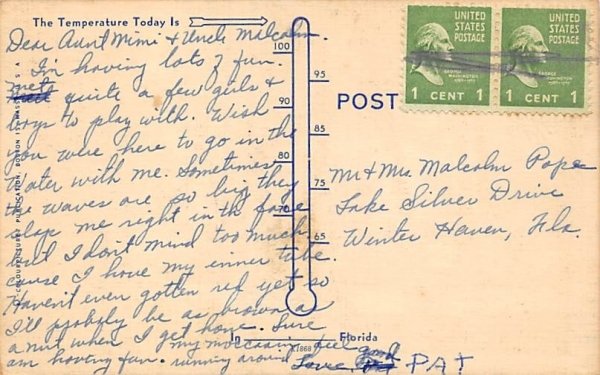 The Temperature Today Is
Dear Aunt Mimi & Uncle Malcolm.
I'm having lots of fun.
met quite a few girls &
boys to play with. Wish
you were here to go in the
water with me. Sometimes
the waves are so big they
slap me right in the face
but I don't mind too much
cause I have my inner tube.
Haven't even gotten red yet so
I'll probably be as brown as
a nut when I get home. Sure
am having fun. running around
my moccasins feel good
Love
PAT
100
95
90
85
80
75
70
65
In Florida
POST
UNITED
STATES
POSTAGE
GEORGE
WASHINGTON
1 CENT 1
UNITED
STATES
POSTAGE
GEORGE
WASHINGTON
1 CENT 1
Mr & Mrs. Malcolm Pope
Lake Silver Drive
Winter Haven, Fla.